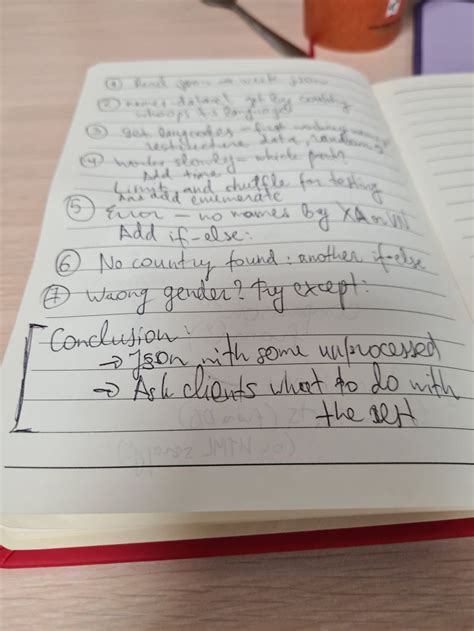 ① Read json → week json
② names-dataset get by country
whoops it's languages
③ Get langcodes - first working names
restructure data, random
④ works slowly = which part?
Add time
Limit and shuffle for testing
and add enumerate
⑤ Error - no names by XA or
Add if-else:
⑥ No country found: another if-else
⑦ Wrong gender? Try except:
Conclusion:
→ Json with some unprocessed
→ Ask clients what to do with
the rest